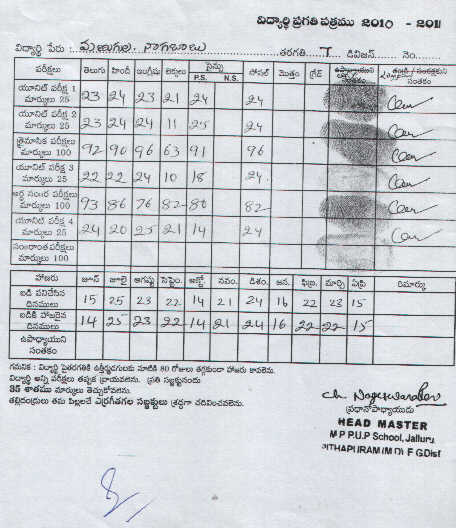 విద్యార్థి ప్రగతి పత్రము 2010 - 2011
విద్యార్థి పేరు : తరగతి డివిజన్ నెం.
పరీక్షలు తెలుగు హిందీ ఇంగ్లీషు లెక్కలు సైన్సు P.S. N.S. సోషల్ మొత్తం గ్రేడ్ ఉపాధ్యాయుని సంతకం తండ్రి / సంరక్షకుని సంతకం
యూనిట్ పరీక్ష 1 మార్కులు 25 23 24 23 21 24 24
యూనిట్ పరీక్ష 2 మార్కులు 25 23 24 24 11 25 24
త్రైమాసిక పరీక్షలు మార్కులు 100 92 90 96 63 91 96
యూనిట్ పరీక్ష 3 మార్కులు 25 22 22 24 10 18 24
అర్ధ సంవర పరీక్షలు మార్కులు 100 93 86 76 82 80 82
యూనిట్ పరీక్ష 4 మార్కులు 25 24 20 25 21 14 24
సంవత్సరాంత పరీక్షలు మార్కులు 100
హాజరు జూన్ జూలై ఆగష్టు సెప్టెం. అక్టో నవం. డిశం. జన. ఫిబ్ర. మార్చి ఏప్రి రిమార్కు
బడి పనిచేసిన దినములు 15 25 23 22 14 21 24 16 22 23 15
బడికి హాజరైన దినములు 14 25 23 22 14 21 24 16 22 22 15
ఉపాధ్యాయుని సంతకం
గమనిక : విద్యార్థి పైతరగతికి ఉత్తీర్ణుడగుటకు నూటికి 80 రోజులు తగ్గకుండా హాజరు కావలెను.
విద్యార్థి అన్ని పరీక్షలు తప్పక వ్రాయవలెను. ప్రతి సబ్జక్టునందు
35 శాతము మార్కులు తెచ్చుకోవలెను.
తల్లిదండ్రులు తమ పిల్లలచే ఎర్రగీతగల సబ్జక్టులు శ్రద్ధగా చదివించవలెను.
Ch. Nageswara Rao
ప్రధానోపాధ్యాయుడు
HEAD MASTER
M P P.U.P School, Jalluru
PITHAPURAM (M D) E G.Dist